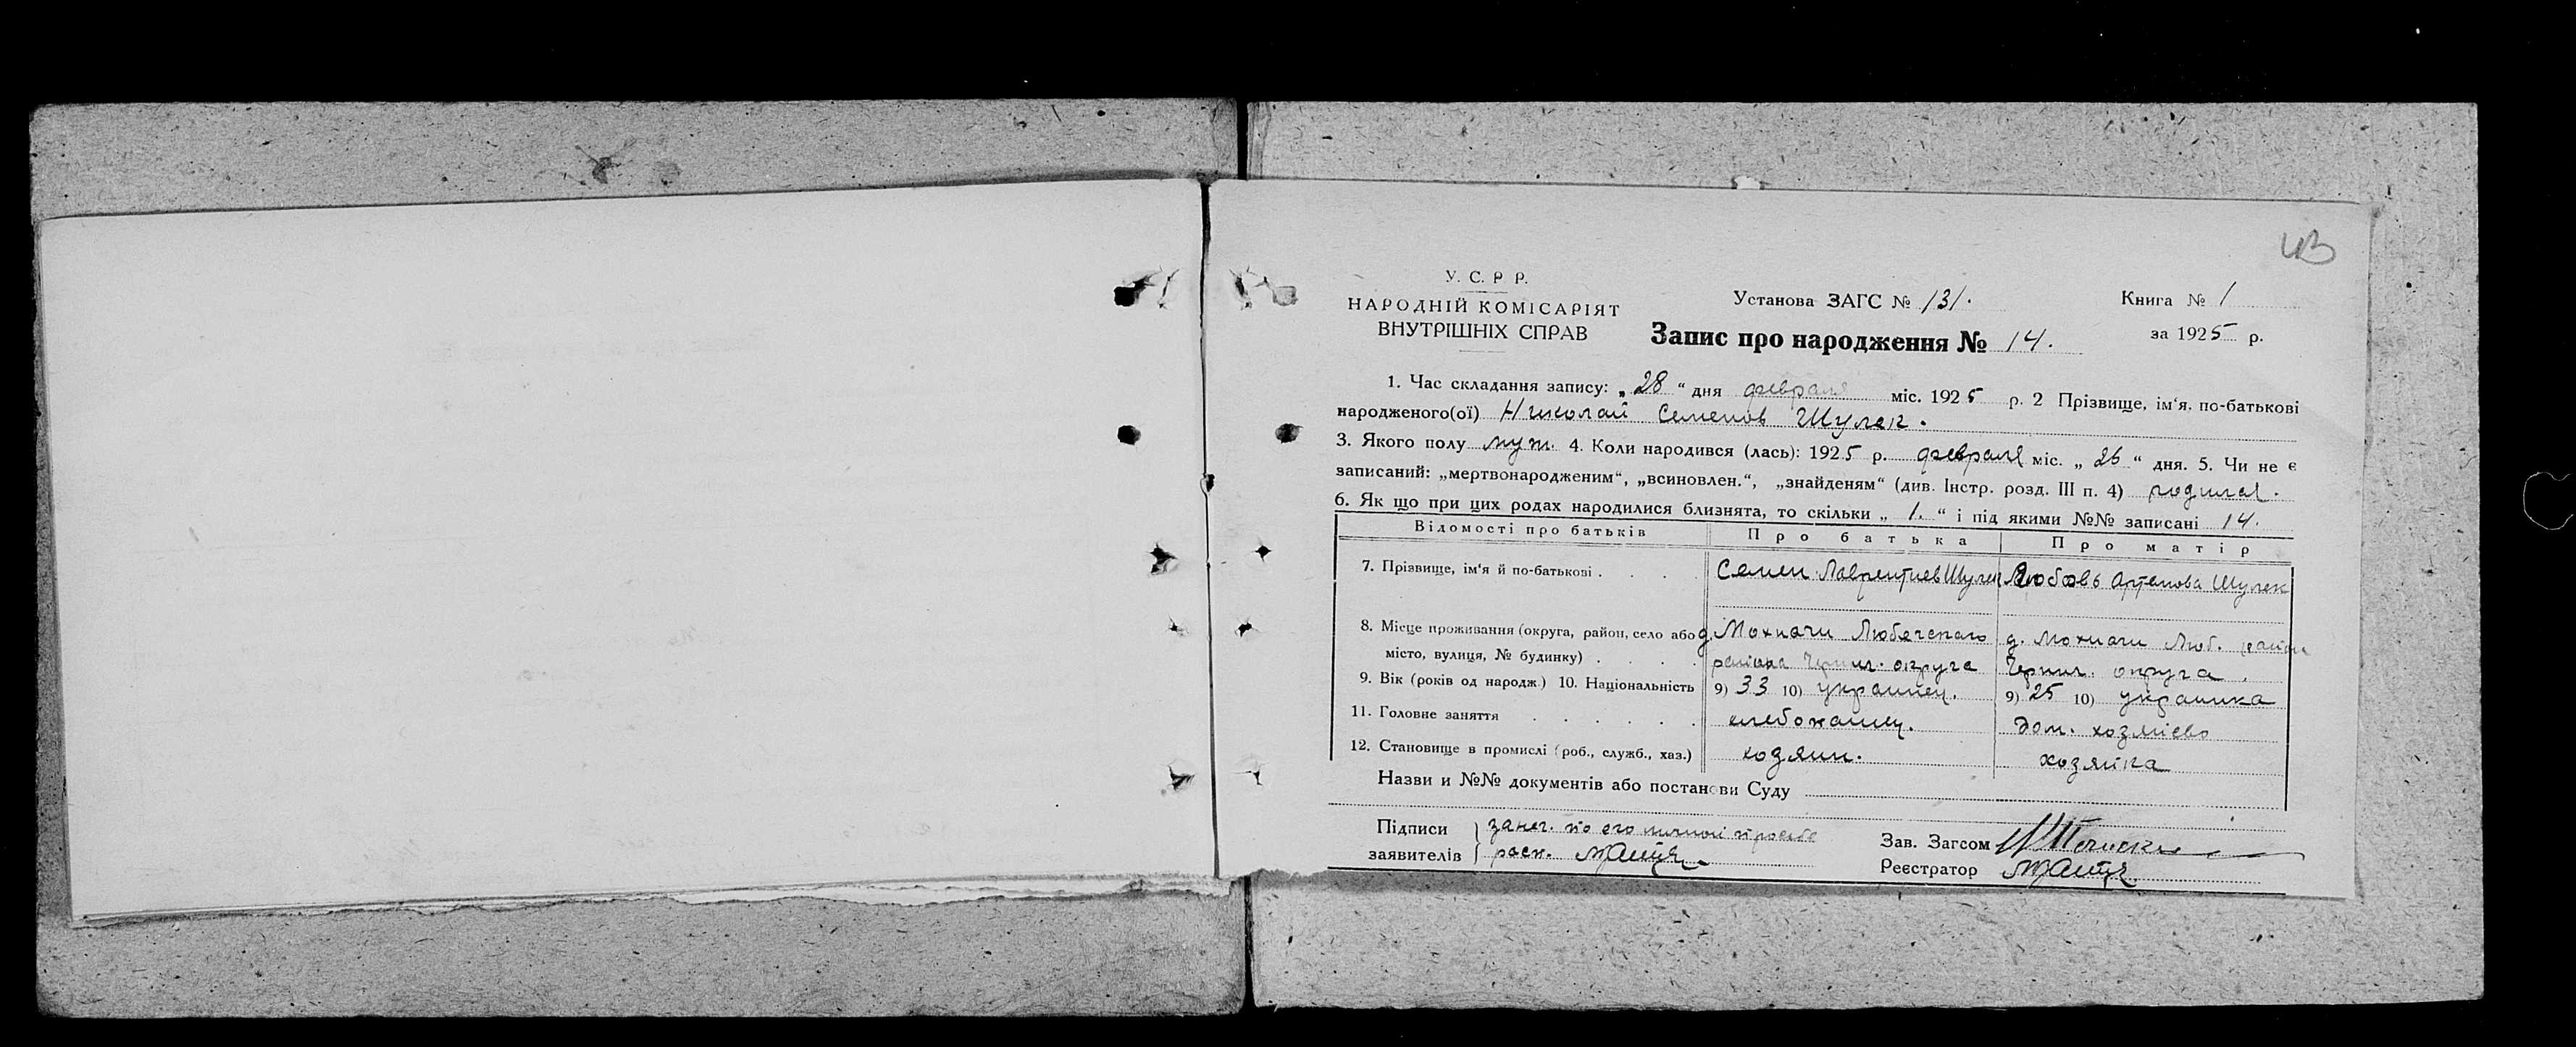 43
У. С. Р Р.
НАРОДНІЙ КОМІСАРІЯТ
ВНУТРІШНІХ СПРАВ
Установа ЗАГС № 131.
Книга № 1
Запис про народження № 14.
за 1925 р.
1. Час складання запису: „28“ дня февраля міс. 1925 р. 2 Прізвище, ім‘я, по-батькові
народженого(ої) Николай Семенов Шулек.
3. Якого полу муж. 4. Коли народився (лась): 1925 р. февраля міс. „26“ дня. 5. Чи не є
записаний: „мертвонародженим“, „всиновлен.“, „знайденям“ (див. Інстр. розд. III п. 4) родился.
6. Як що при цих родах народилися близнята, то скільки „1.“ і під якими №№ записані 14.
Відомості про батьків Про батька Про матір
7. Прізвище, ім‘я й по-батькові . . . . Семен Лаврентиев Шулек Любовь Артемова Шулек
8. Місце проживання (округа, район, село або д. Мохначи Любечскаго д. Мохначи Люб. район
місто, вулиця, № будинку) . . . . района Черниг. округа Черниг. округа.
9. Вік (років од народж.) 10. Національність 9) 33 10) украинец. 9) 25 10) украинка
11. Головне заняття . . . . . . хлебопашец. дом. хозяйсво
12. Становище в промислі (роб., служб., хаз.) хозяин. хозяйка
Назви и №№ документів або постанови Суду
Підписи заявителів
занег. по его личной просьбе
расп.
Зав. Загсом
Реєстратор